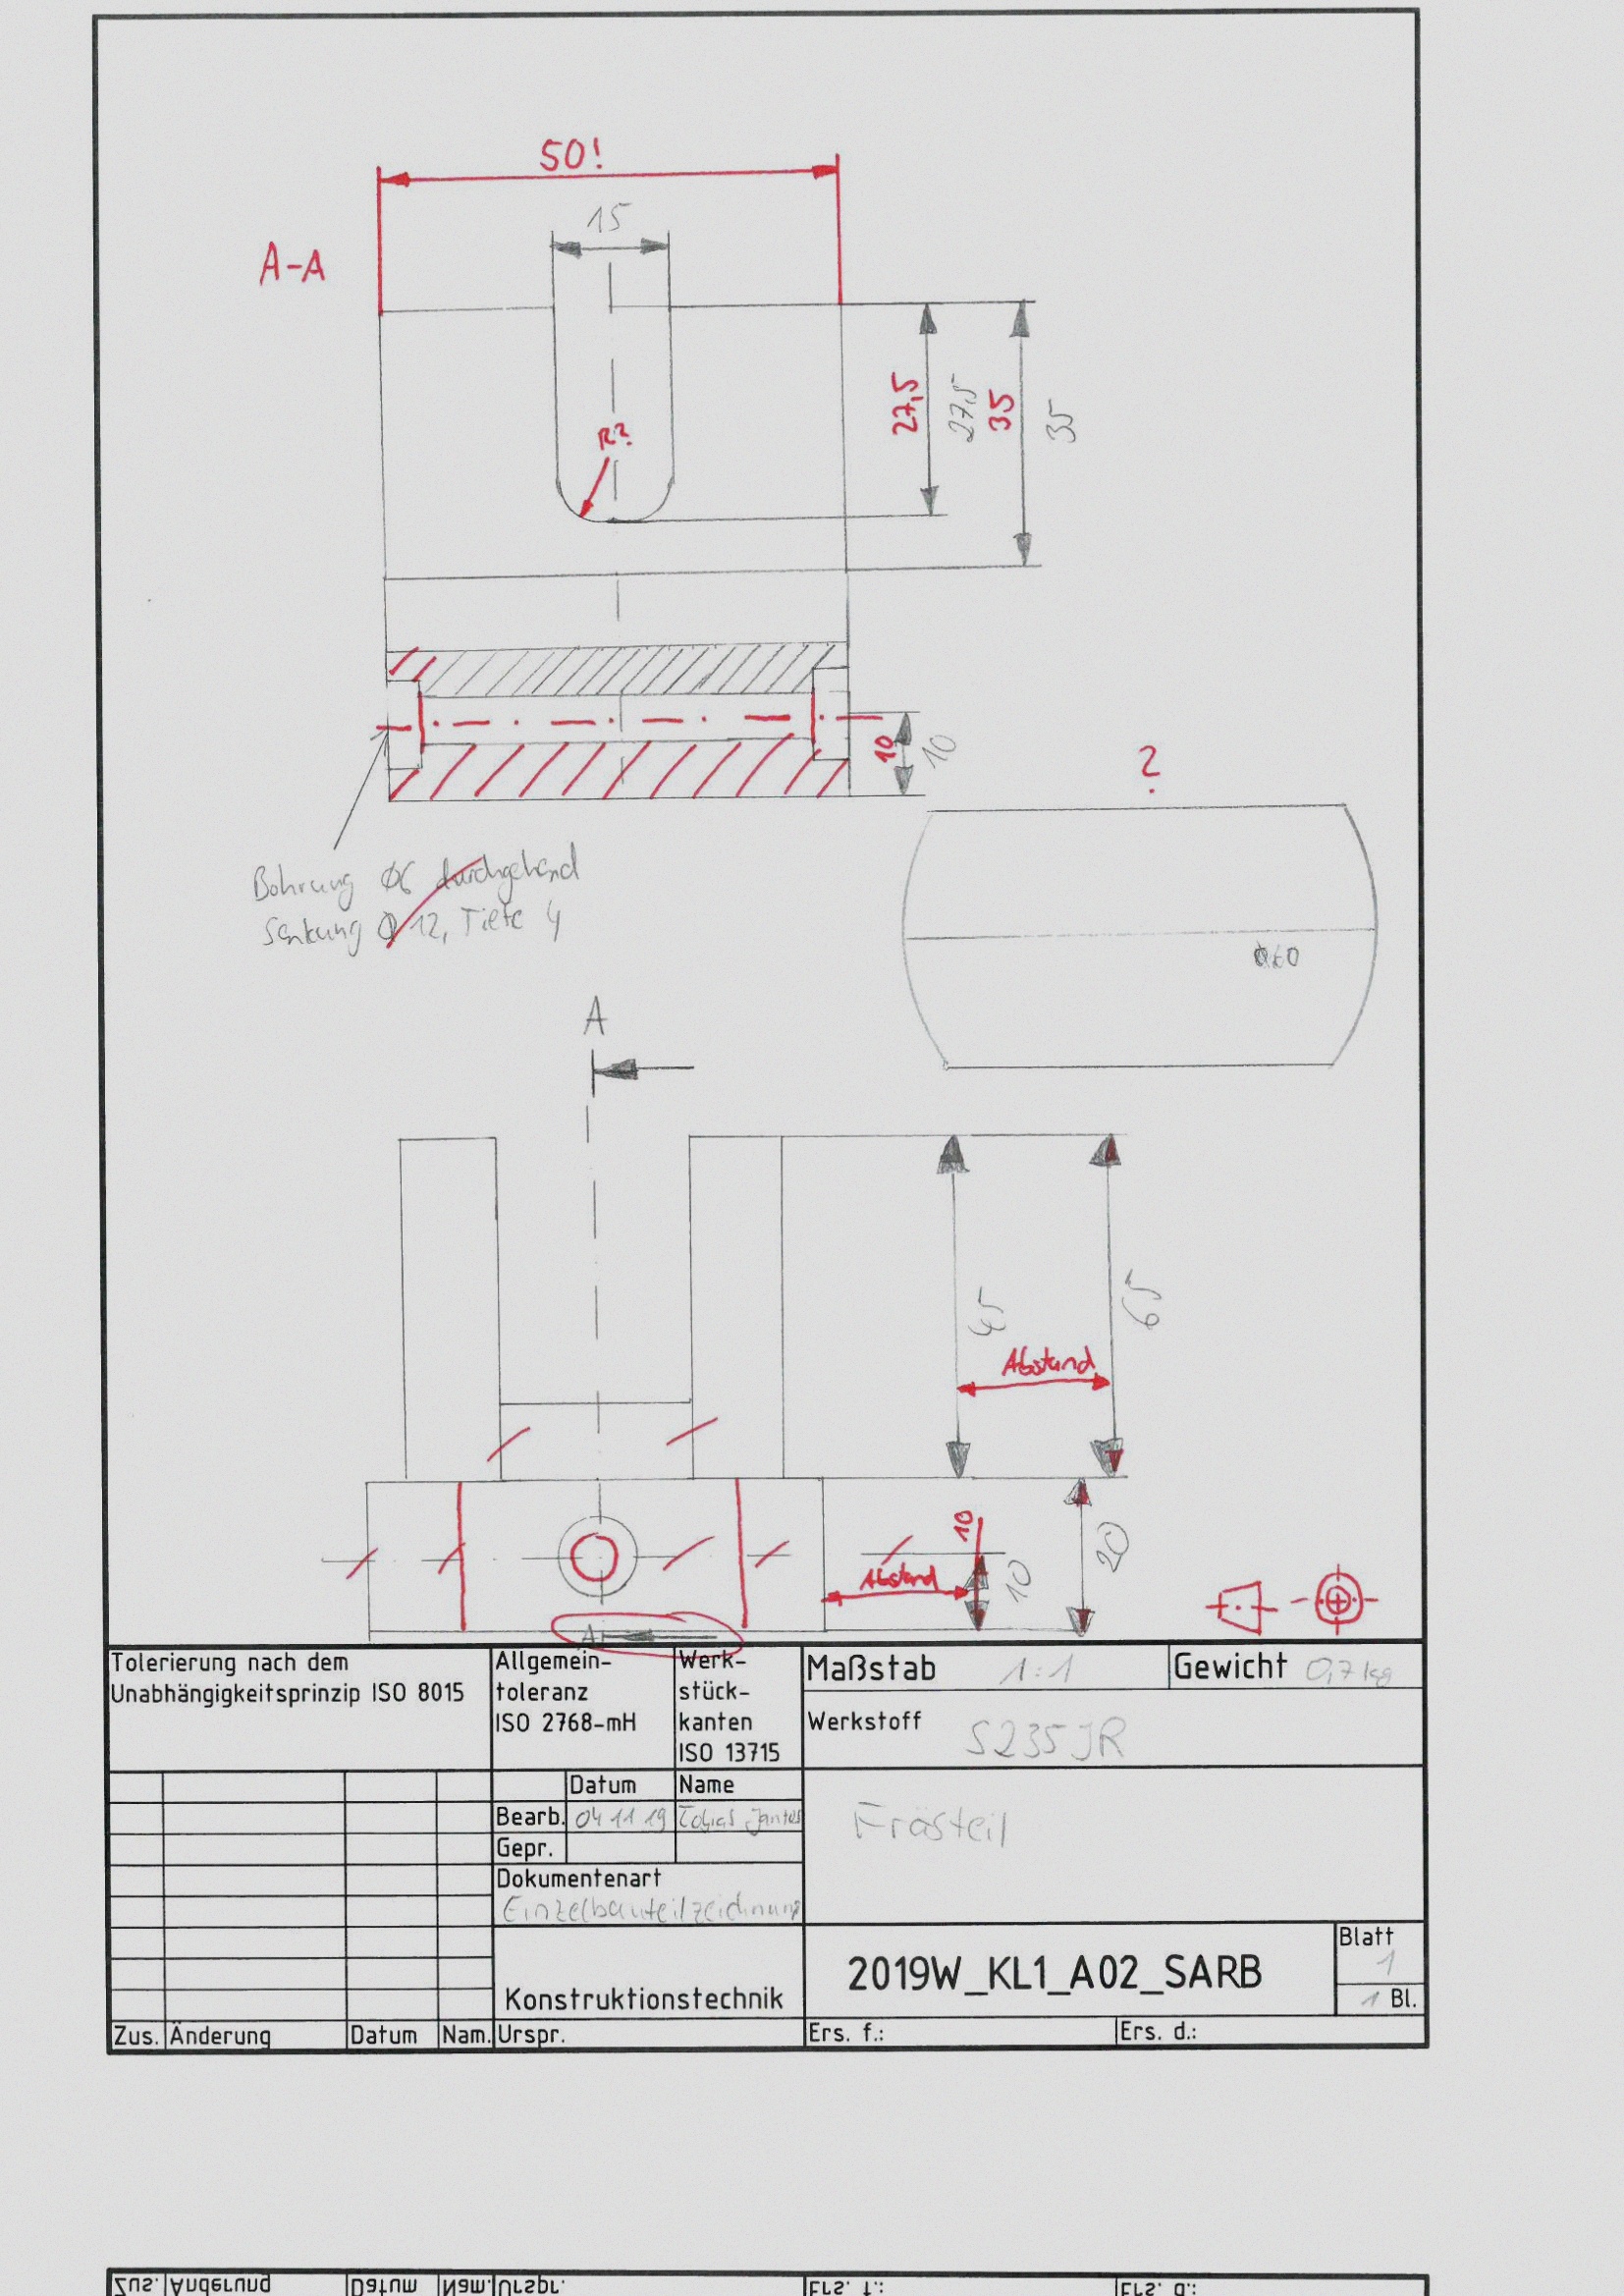 50!
15
A-A
27,5
27,5
35
35
R?
10
10
?
Bohrung Ø6 durchgehend
Senkung Ø12, Tiefe 4
Ø60
A
45
65
Abstand
10
Abstand
10
20
A
Tolerierung nach dem
Unabhängigkeitsprinzip ISO 8015
Allgemein-
toleranz
ISO 2768-mH
Werk-
stück-
kanten
ISO 13715
Maßstab 1:1
Gewicht 0,7 kg
Werkstoff S235JR
Datum Name
Bearb. 04 11 19 Tobias
Gepr.
Dokumentenart
Einzelbauteilzeichnung
Frästeil
Konstruktionstechnik
2019W_KL1_A02_SARB
Blatt
1
1 Bl.
Zus. Änderung Datum Nam. Urspr. Ers. f.: Ers. d.:
Zus. Änderung Datum Nam. Urspr. Ers. f.: Ers. d.: